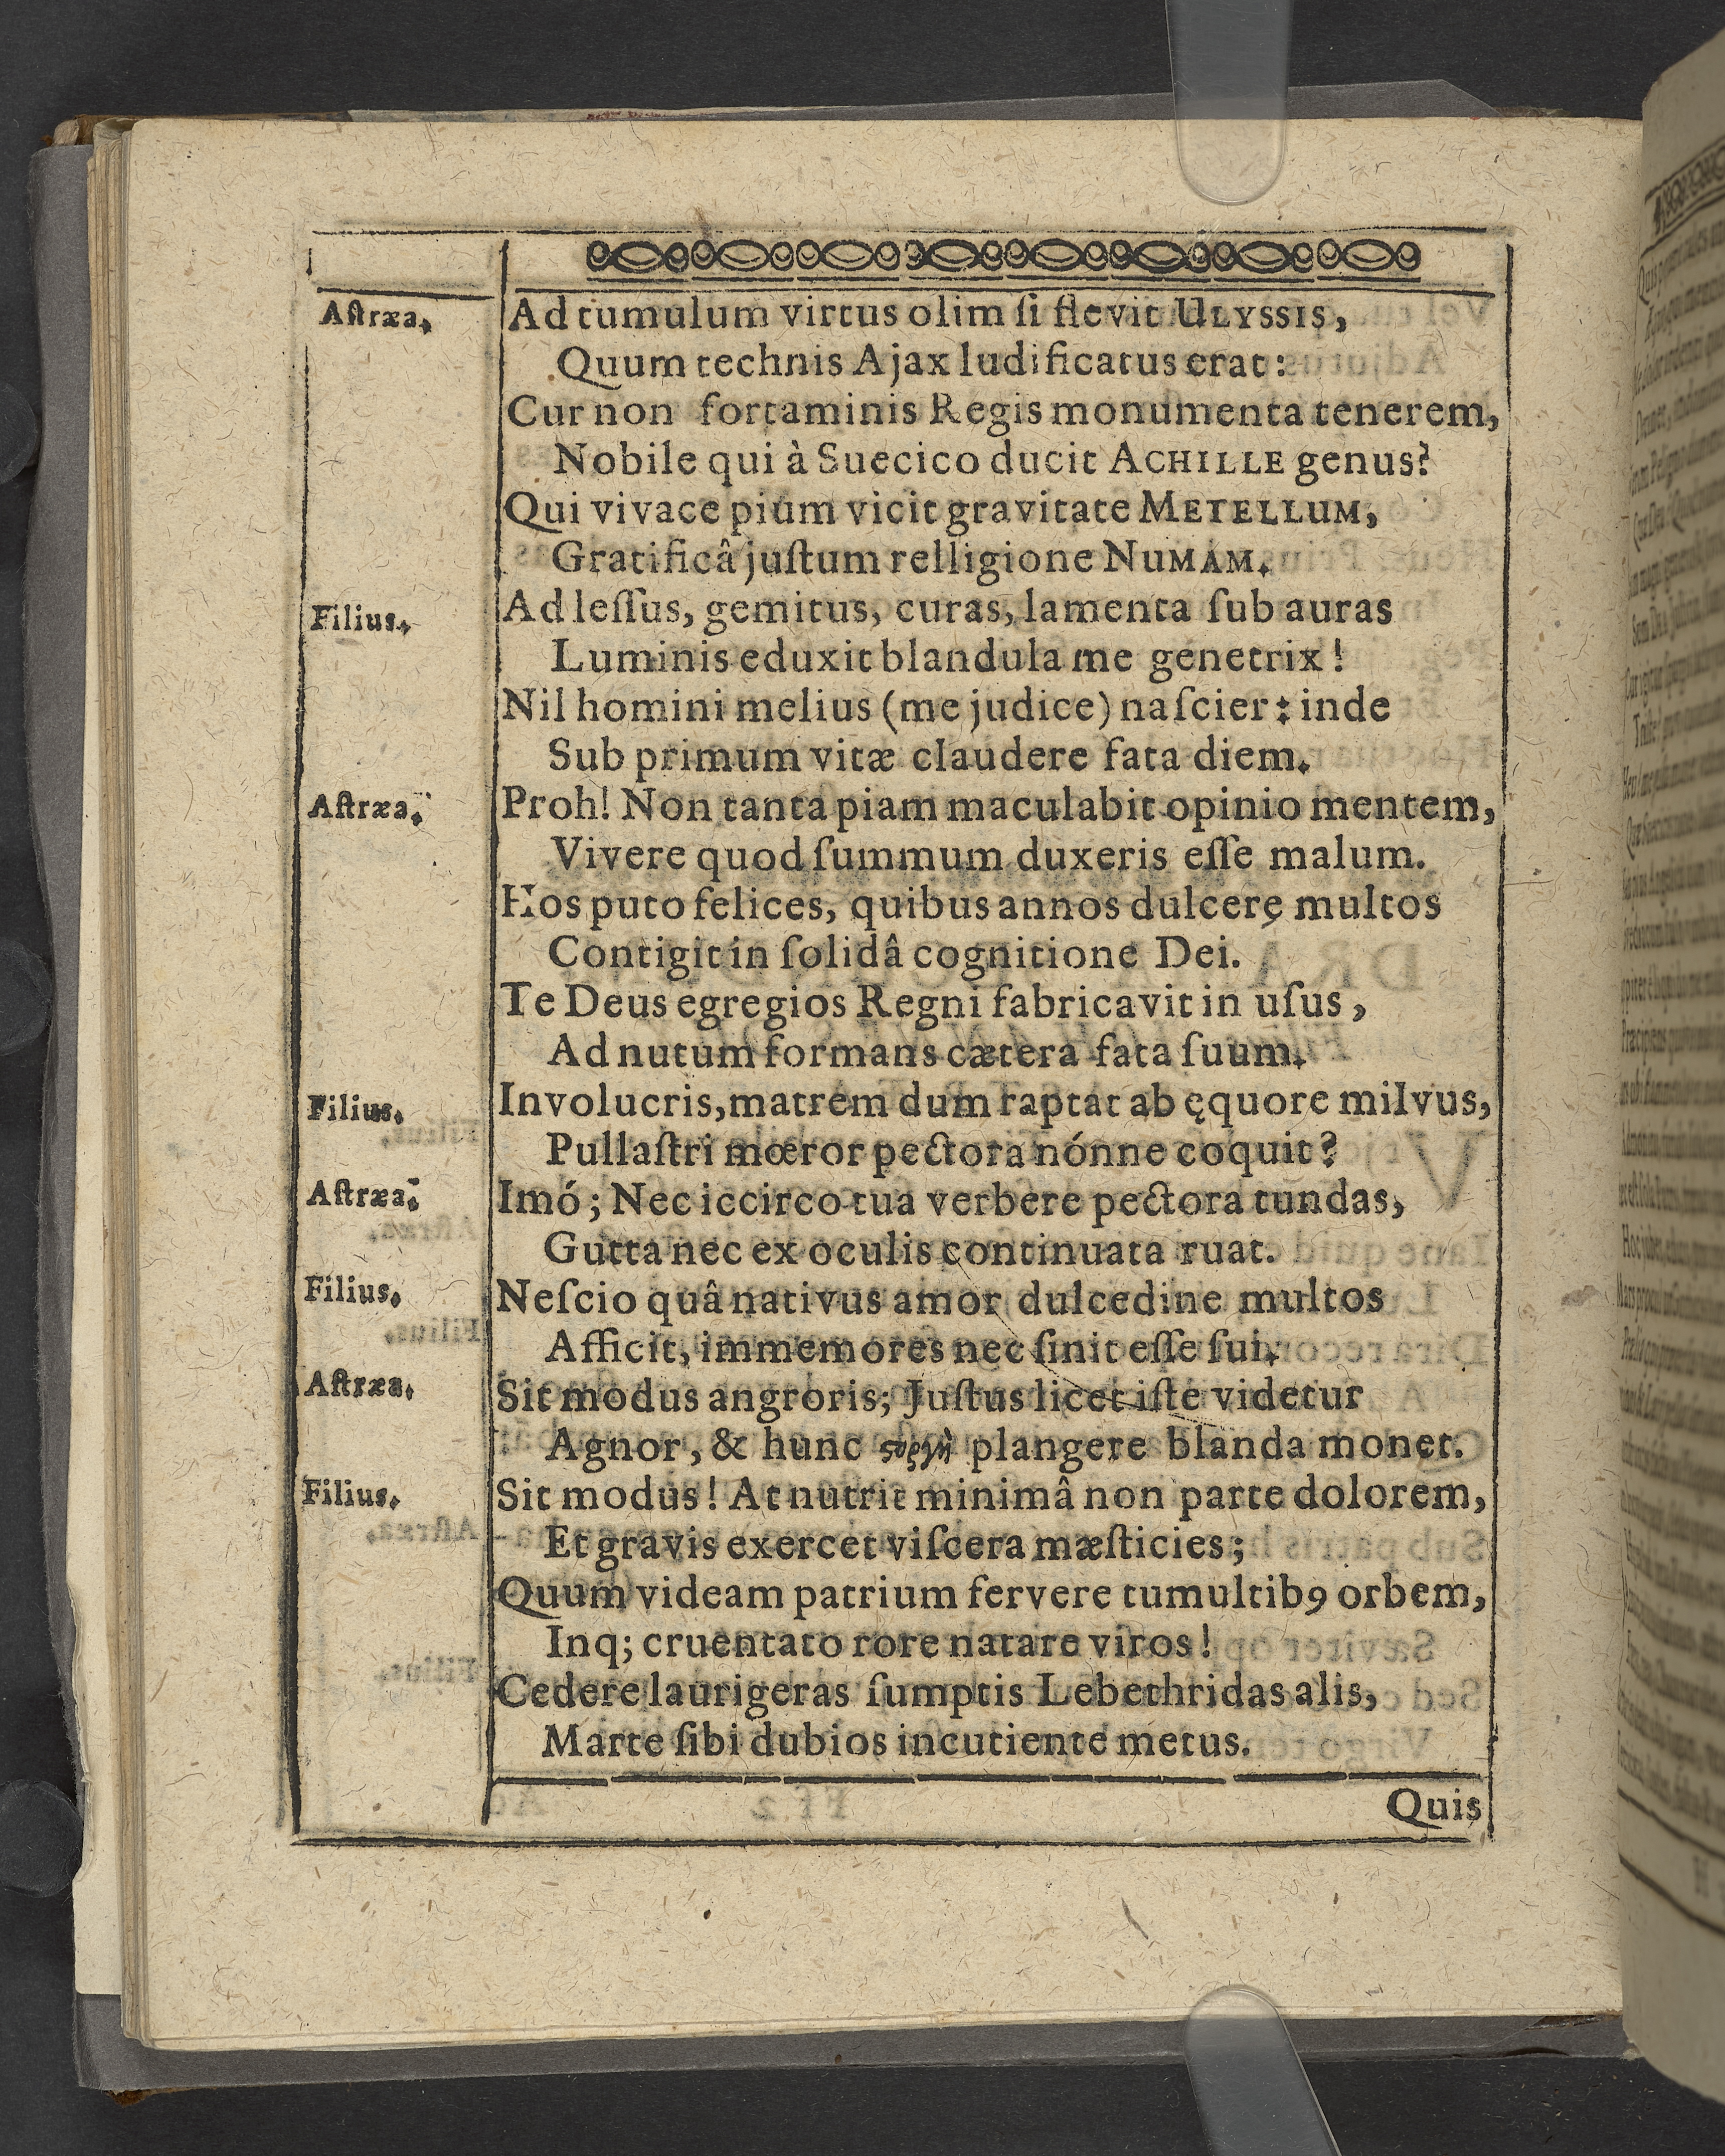 Aſtræa. Ad tumulum virtus olim ſi flevit ULYSSIS,
Quum technis Ajax ludificatus erat:
Cur non fortaminis Regis monumenta tenerem,
Nobile qui à Suecico ducit ACHILLE genus?
Qui vivace pium vicit gravitate METELLUM,
Gratificâ juſtum relligione NUMAM.
Filius. Ad leſſus, gemitus, curas, lamenta ſub auras
Luminis eduxit blandula me genetrix!
Nil homini melius (me judice) naſcier: inde
Sub primum vitæ claudere fata diem.
Aſtræa. Proh! Non tanta piam maculabit opinio mentem,
Vivere quod ſummum duxeris eſſe malum.
Hos puto felices, quibus annos dulcerę multos
Contigit in ſolidâ cognitione Dei.
Te Deus egregios Regni fabricavit in uſus,
Ad nutum formans cætera fata ſuum.
Filius. Involucris, matrem dum raptat ab ęquore milvus,
Pullaſtri mœror pectora nónne coquit?
Aſtræa. Imó; Nec iccirco tua verbere pectora tundas,
Gutta nec ex oculis continuata ruat.
Filius. Neſcio quâ nativus amor dulcedine multos
Afficit, immemores nec ſinit eſſe ſui.
Aſtræa. Sit modus angroris; Juſtus licet iſte videtur
Agnor, & hunc ϛοργὴ plangere blanda monet.
Filius. Sit modus! At nutrit minimâ non parte dolorem,
Et gravis exercet viſcera mæſticies;
Quum videam patrium fervere tumultib9 orbem,
Inq; cruentato rore natare viros!
Cedere laurigeras ſumptis Lebethridas alis,
Marte ſibi dubios incutiente metus.
Quis